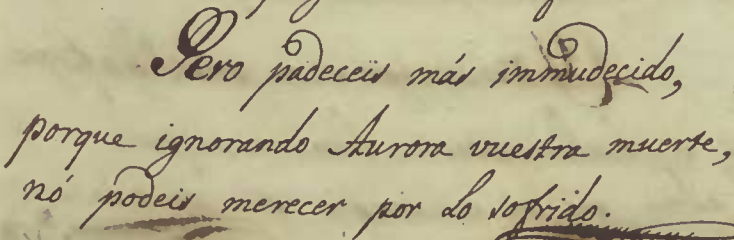 Pero padeceis más immudecido,
porque ignorando Aurora vuestra muerte,
nó podeis merecer por lo sofrido.